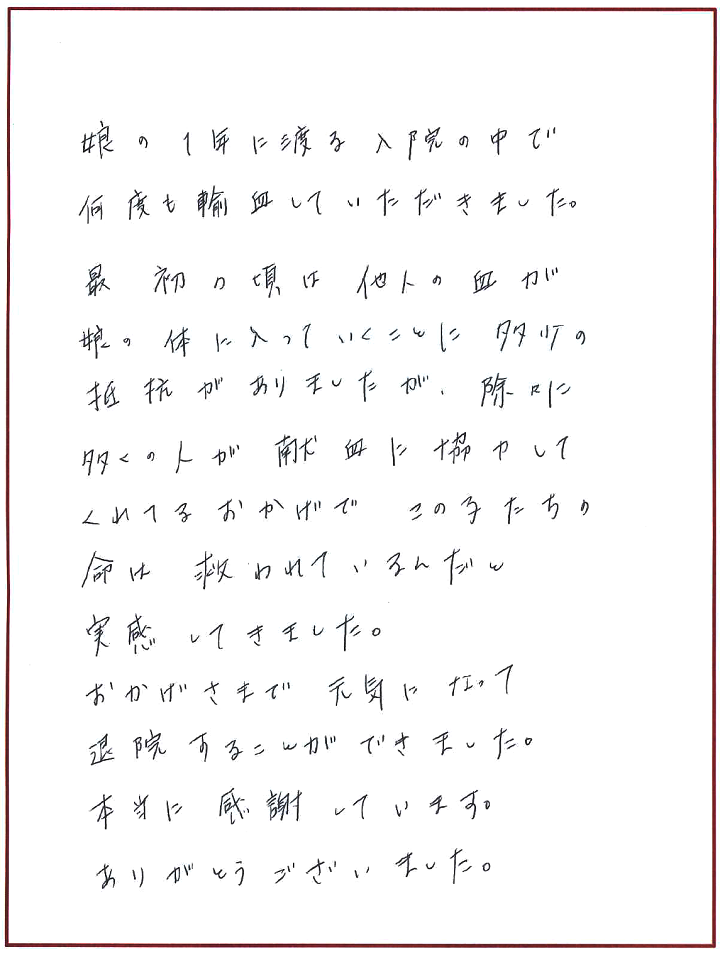 娘の1年に渡る入院の中で
何度も輸血していただきました。
最初の頃は他人の血が
娘の体に入っていくことに多少の
抵抗がありましたが、除々に
多くの人が献血に協力して
くれてるおかげでこの子たちの
命は救われているんだと
実感してきました。
おかげさまで元気になって
退院することができました。
本当に感謝しています。
ありがとうございました。